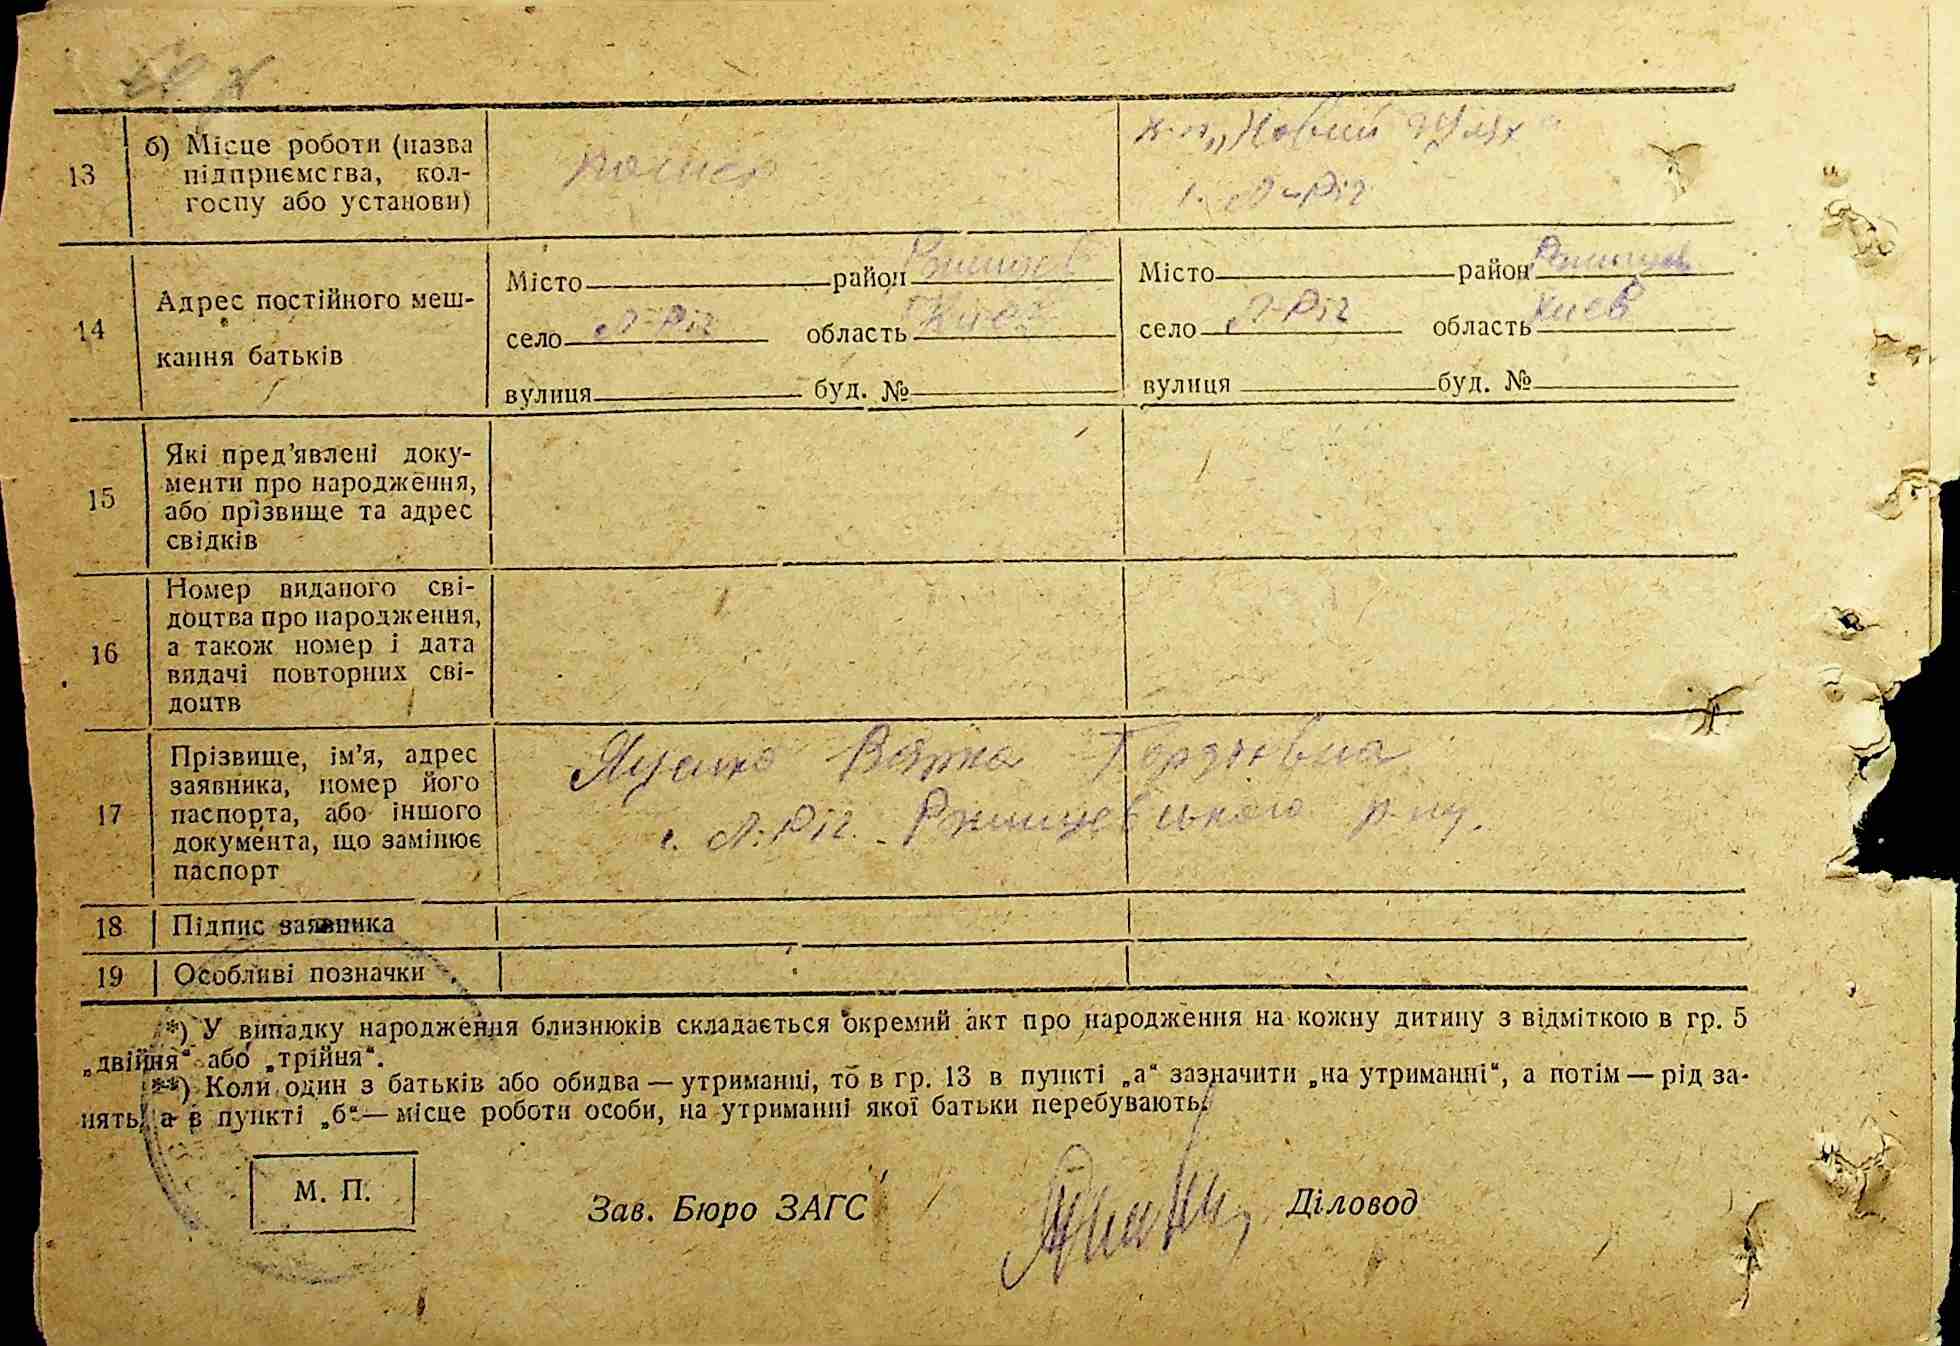 13
б) Місце роботи (назва
підприємства, кол-
госпу або установи)
помер
к-п „Новий Шлях"
с. Л-Ріг
14
Адрес постійного меш-
кання батьків
Місто район Ржищев
село Л-Ріг область Киев
вулиця буд. №
Місто район Ржищев
село Л-Ріг область Киев
вулиця буд. №
15
Які пред'явлені доку-
менти про народження,
або прізвище та адрес
свідків
16
Номер виданого сві-
доцтва про народження,
а також номер і дата
видачі повторних сві-
доцтв
17
Прізвище, ім'я, адрес
заявника, номер його
паспорта, або іншого
документа, що замінює
паспорт
Яценко Варка
с. Л.Ріг. Ржищевського р-ну.
18 Підпис заявника
19 Особливі позначки
*) У випадку народження близнюків складається окремий акт про народження на кожну дитину з відміткою в гр. 5
„двійня“ або „трійня“.
**) Коли один з батьків або обидва — утриманці, то в гр. 13 в пункті „а“ зазначити „на утриманні“, а потім — рід за-
нять, а в пункті „б“ — місце роботи особи, на утриманні якої батьки перебувають.
М. П.
Зав. Бюро ЗАГС
Діловод